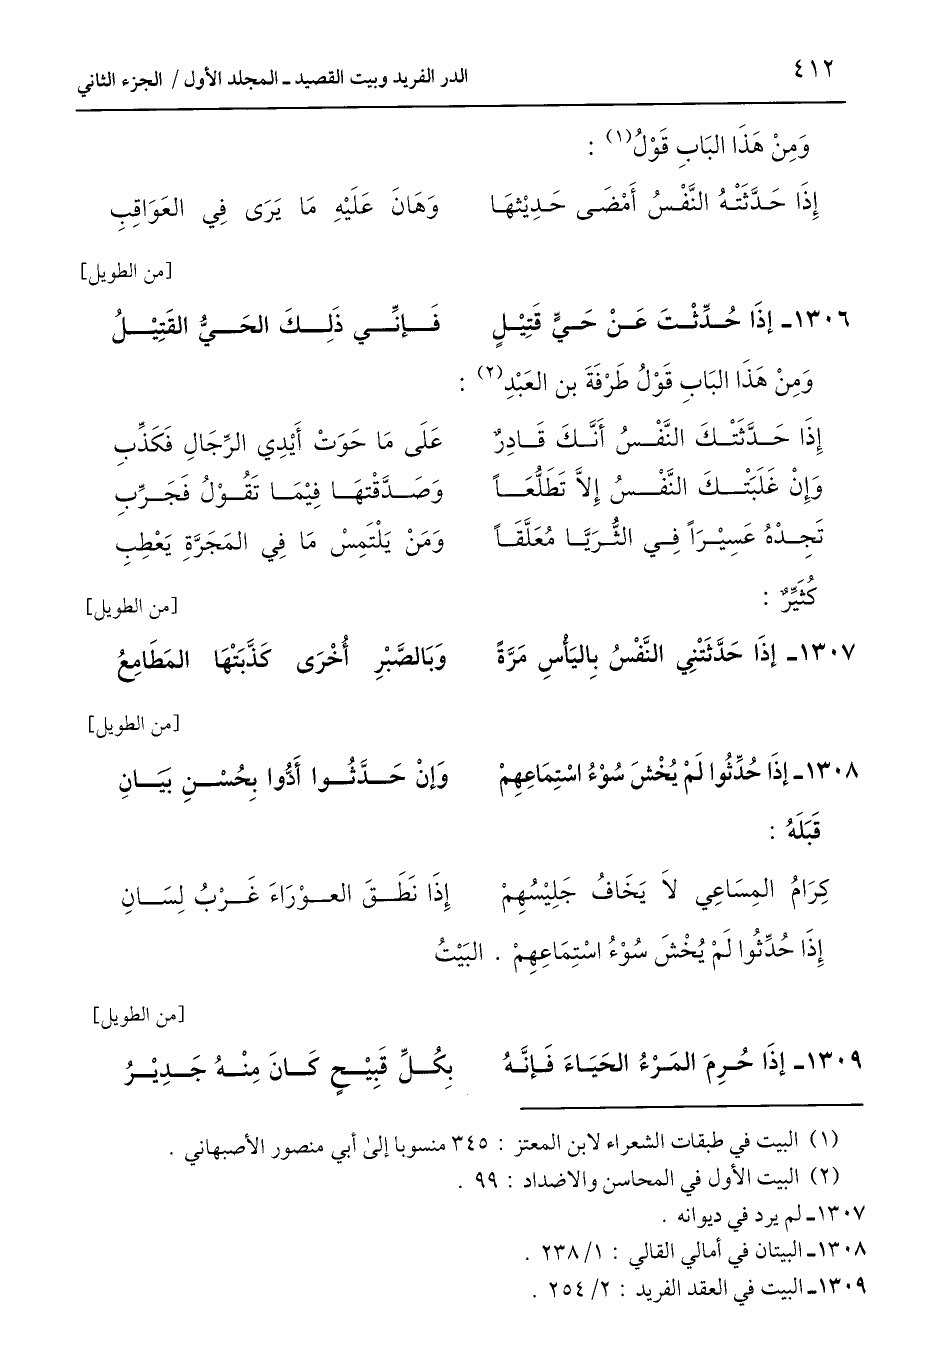 ٤١٢ الدر الفريد وبيت القصيد ـ المجلد الأول / الجزء الثاني
وَمِنْ هَذَا البَابِ قَوْلُ(١) :
إِذَا حَدَّثَتْهُ النَّفْسُ أَمْضَى حَدِيْثهَا وَهَانَ عَلَيْهِ مَا يَرَى فِي العَوَاقِبِ
[من الطويل]
١٣٠٦ـ إِذَا حُدِّثْتَ عَنْ حَيٍّ قَتِيْلٍ فَإِنِّي ذَلِكَ الحَيُّ القَتِيْلُ
وَمِنْ هَذَا البَابِ قَوْلُ طَرْفَةَ بن العَبْدِ(٢) :
إِذَا حَدَّثَتْكَ النَّفْسُ أَنَّكَ قَادِرٌ عَلَى مَا حَوَتْ أَيْدِي الرِّجَالِ فَكَذِّبِ
وَإِنْ غَلَبَتْكَ النَّفْسُ إِلاَّ تَطَلُّعَاً وَصَدَّقْتهَا فِيْمَا تَقُوْلُ فَجَرِّبِ
تَجِدْهُ عَسِيْرَاً فِي الثُّرَيَّا مُعَلَّقَاً وَمَنْ يَلْتَمِسْ مَا فِي المَجَرَّةِ يَعْطِبِ
كُثَيِّرٌ : [من الطويل]
١٣٠٧ـ إِذَا حَدَّثَتْنِي النَّفْسُ بِاليَأْسِ مَرَّةً وَبَالصَّبْرِ أُخْرَى كَذَّبَتْهَا المَطَامِعُ
[من الطويل]
١٣٠٨ـ إِذَا حُدِّثُوا لَمْ يُخْشَ سُوْءُ اسْتِمَاعِهِمْ وَإِنْ حَدَّثُوا أَدُّوا بِحُسْنِ بَيَانِ
قَبَلَهُ :
كِرَامُ المِسَاعِي لاَ يَخَافُ جَلِيْسُهِمْ إِذَا نَطَقَ العوْرَاءَ غَرْبُ لِسَانِ
إِذَا حُدِّثُوا لَمْ يُخْشَ سُوْءُ اسْتِمَاعِهِمْ . البَيْتُ
[من الطويل]
١٣٠٩ـ إِذَا حُرِمَ المَرْءُ الحَيَاءَ فَإِنَّهُ بِكُلِّ قَبِيْحٍ كَانَ مِنْهُ جَدِيْرُ
(١) البيت في طبقات الشعراء لابن المعتز : ٣٤٥ منسوبا إلىٰ أبي منصور الأصبهاني .
(٢) البيت الأول في المحاسن والاضداد : ٩٩ .
١٣٠٧ـ لم يرد في ديوانه .
١٣٠٨ـ البيتان في أمالي القالي : ١/ ٢٣٨ .
١٣٠٩ـ البيت في العقد الفريد : ٢/ ٢٥٤ .